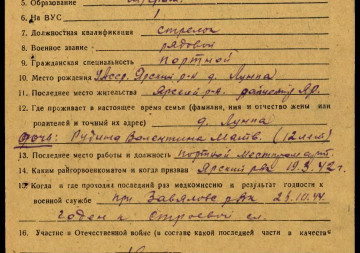 5. Образование
6. На ВУС 1
7. Должностная квалификация стрелок
8. Военное звание рядовой
9. Гражданская специальность портной
10. Место рождения Удасср. Ярский р-н д. Лумпа
11. Последнее место жительства Ярский р-н.
12. Где проживает в настоящее время семья (фамилия, имя и отчество жены или
родителей и точный их адрес) д. Лумпа
дочь: Рубина Валентина Матв. (12 лет)
13. Последнее место работы и должность портной
14. Каким райгорвоенкоматом и когда призван Ярский рвк 19.3.42г.
15. Когда и где проходил последний раз медкомиссию и результат годности к
военной службе при Завялов. рвк 23.10.44.
Годен к строевой сл.
16. Участие в Отечественной войне (в составе какой последней части и в качестве